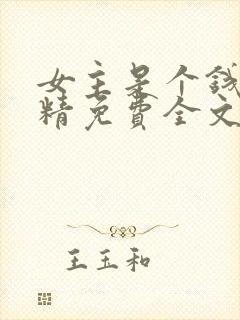 女主是个钱
精免費全文
王玉和